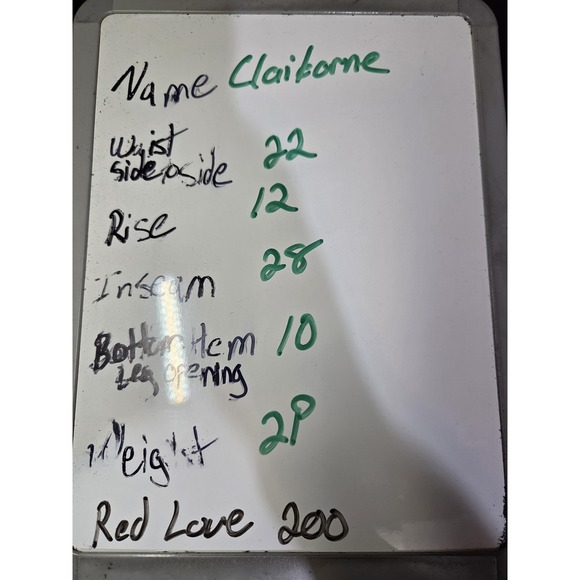 Name Claiborne
Waist 22
side to side
Rise 12
Inseam 28
Bottom Hem 10
Leg opening
Weight 2P
Red Love 200